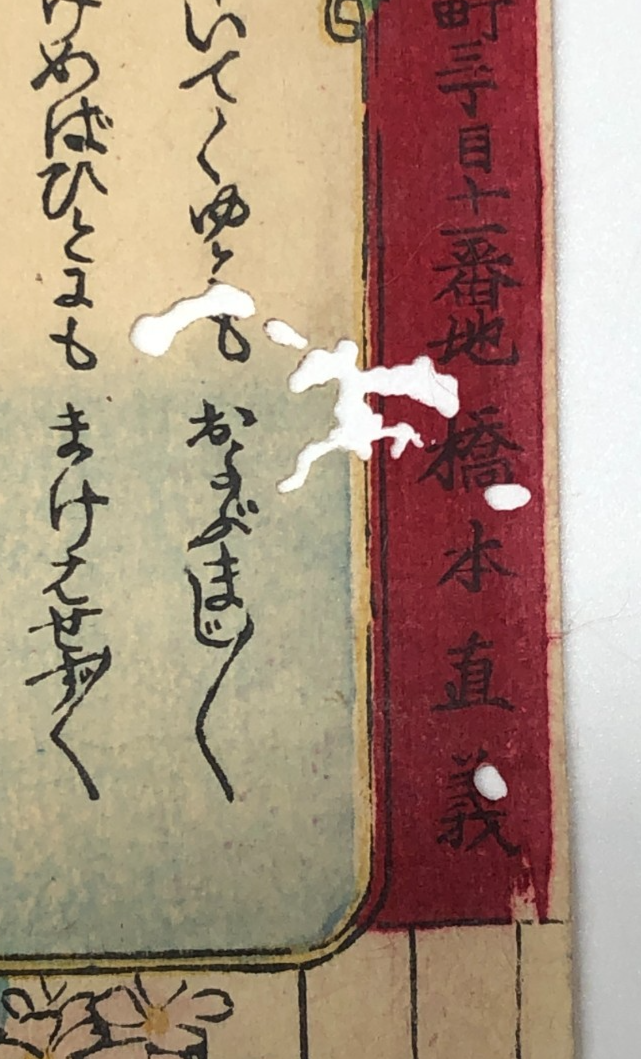 町三丁目十一番地 橋本直義
いてくゆくも およぶまじ〱
けめばひとよも まけはせず〱